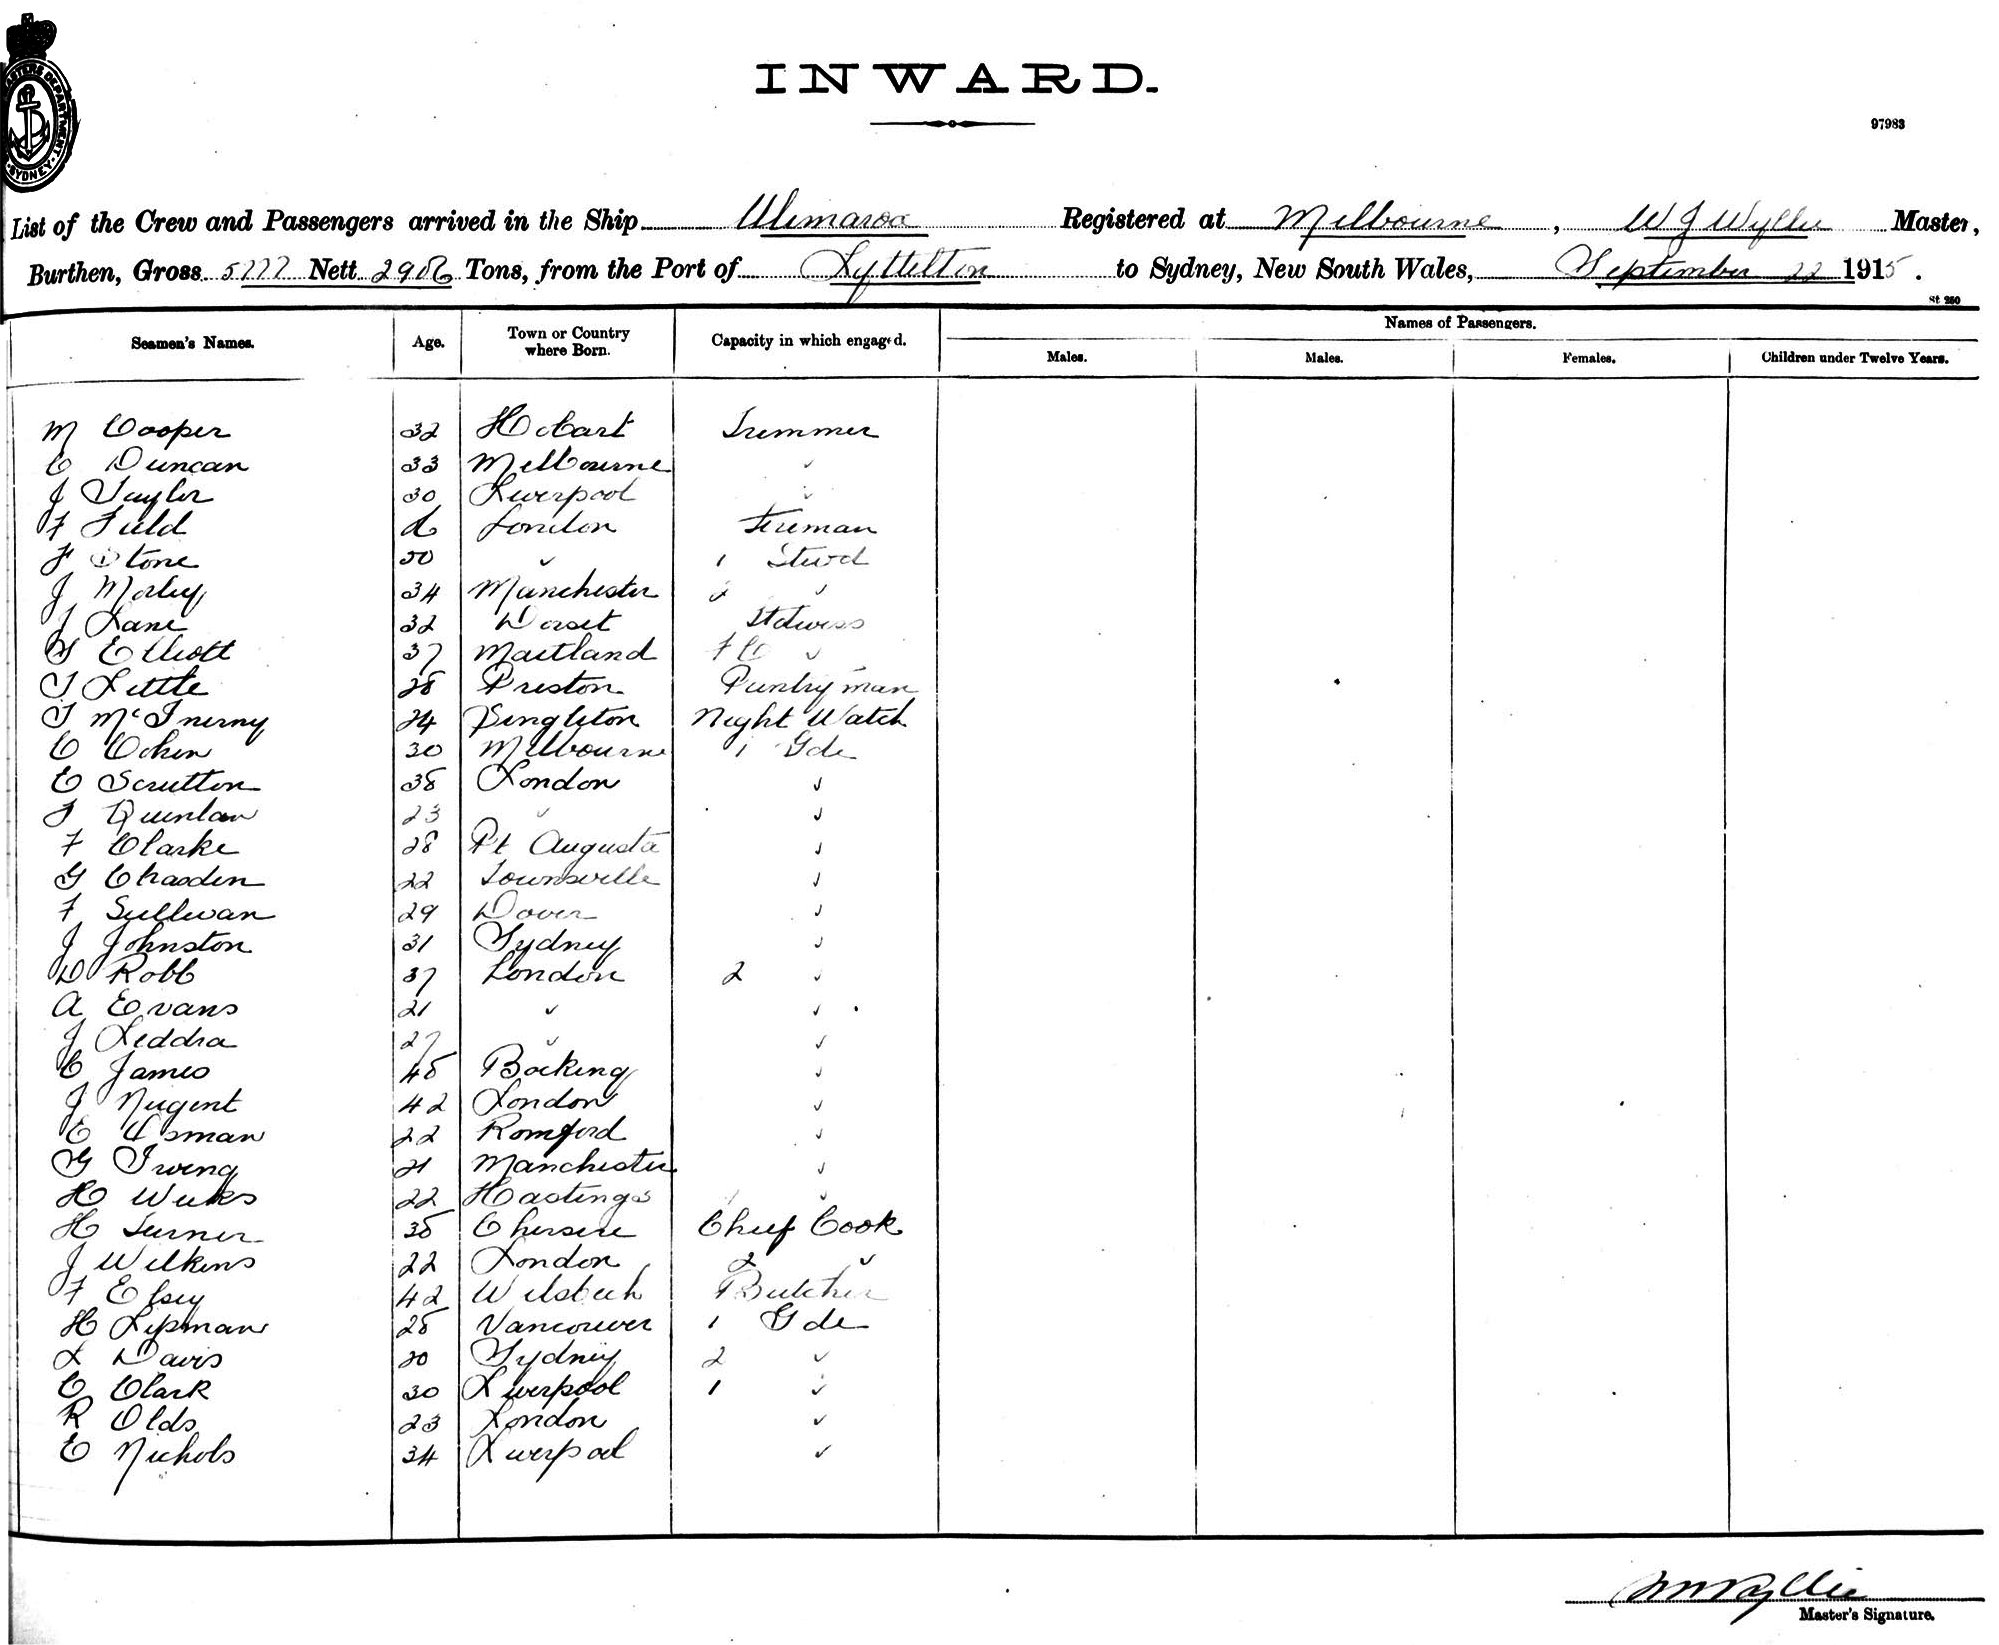 INWARD.
97983
MASTERS DEPARTMENT SYDNEY
List of the Crew and Passengers arrived in the Ship Ulimaroa Registered at Melbourne, W J Wyllie Master,
Burthen, Gross 5777 Nett 2906 Tons, from the Port of Lyttelton to Sydney, New South Wales, September 22 1915.
St 250
Seamen's Names. Age. Town or Country where Born. Capacity in which engaged. Names of Passengers.
Males. Males. Females. Children under Twelve Years.
M Cooper 32 Hobart Trimmer
C Duncan 33 Melbourne "
J Taylor 30 Liverpool "
F Field London Fireman
F Stone 50 " 1 Stwd
J Morley 34 Manchester 2 "
J Lane 32 Dorset Stdwess
G Elliott 37 Maitland "
T Little 28 Preston Pantryman
T McInerny 24 Singleton Night Watch
C Cohen 30 Melbourne 1 Gde
E Scrutton 38 London "
T Quinlan 23 " "
F Clarke 28 Pt Augusta "
G Chasden 22 Townsville "
F Sullivan 29 Dover "
J Johnston 31 Sydney "
D Robb 37 London 2 "
A Evans 21 " "
J Leddra 27 " "
C James 48 Bocking "
J Nugent 42 London "
E Usman 22 Romford "
G Irwing 21 Manchester "
H Weeks 22 Hastings "
H Turner 38 Chief Cook
J Wilkins 22 London 2 "
F Elsey 42 Wisbech Butcher
H Lipman 28 Vancouver 1 Gde
L Davis 20 Sydney 2 "
C Clark 30 Liverpool 1 "
R Olds 23 London "
E Nichols 34 Liverpool "
W J Wyllie
Master's Signature.